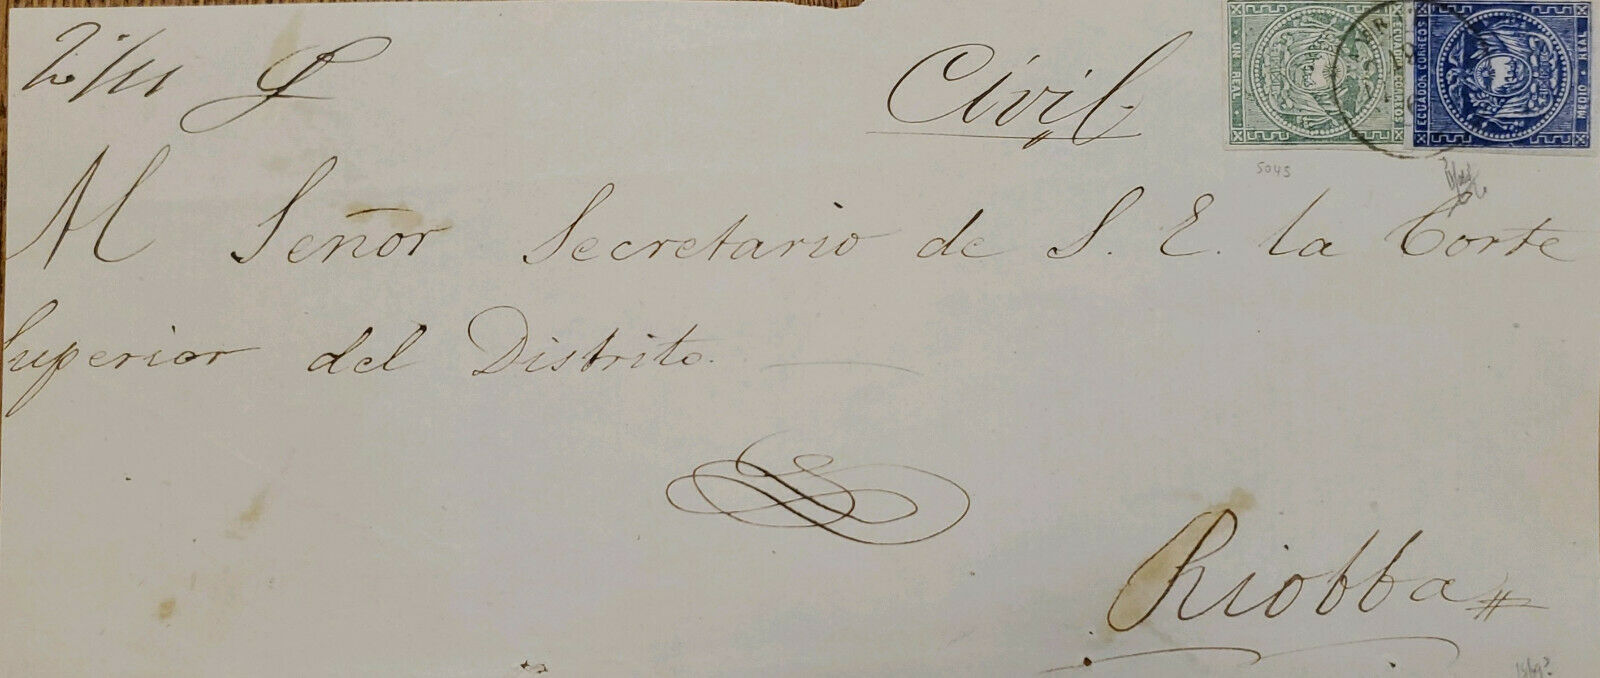 Civil
UN REAL
ECUADOR CORREOS
ECUADOR CORREOS
MEDIO REAL
5045
Al Señor Secretario de S. E. la Corte
Superior del Distrito.
Riobba